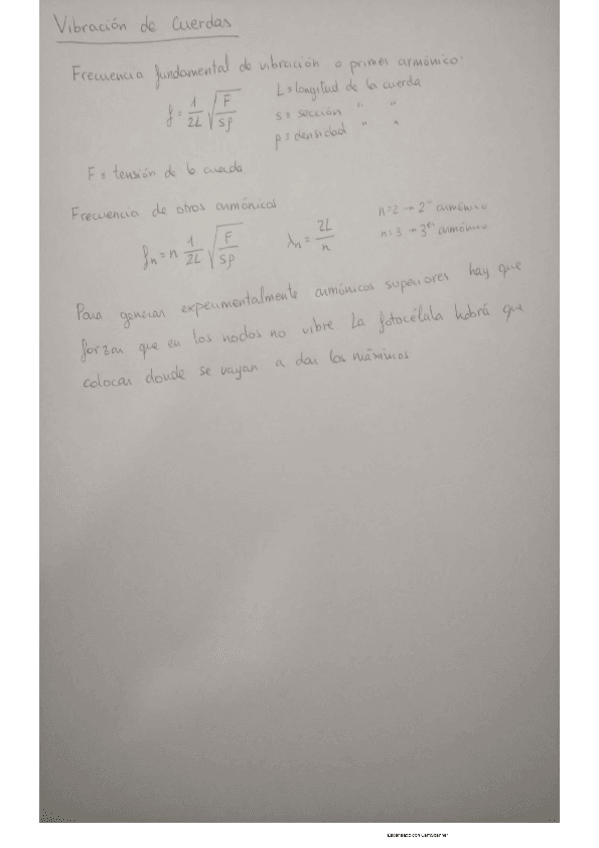 Vibración de Cuerdas
Frecuencia fundamental de vibración o primer armónico:
f = 1/2L √(F/sρ)
L = longitud de la cuerda
s = sección " "
ρ = densidad " "
F = tensión de la cuerda
Frecuencia de otros armónicos
fn = n 1/2L √(F/sρ)
λn = 2L/n
n=2 → 2º armónico
n=3 → 3er armónico
Para generar experimentalmente armónicos superiores hay que
forzar que en los nodos no vibre. La fotocélula habrá que
colocar donde se vayan a dar los máximos
Escaneado con CamScanner